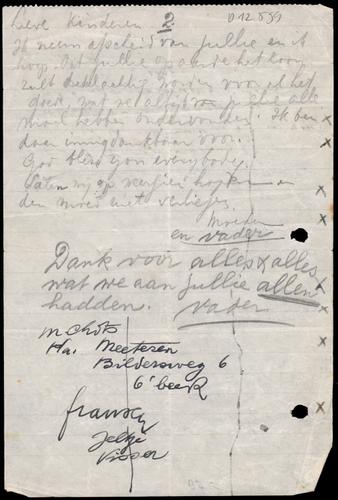 2 D12.859
Lieve Kinderen
Ik neem afscheid van jullie en ik
hoop dat jullie op aarde het loon
zult deelachtig worden voor al het
goede, wat we altijd van jullie alle
maal hebben ondervonden. Ik ben
daar innig dankbaar voor.
God bless you everybody.
Laten wij op weerzien hopen en
den moed niet verliezen.
Moeder
en Vader
Dank voor alles & alles
wat we aan jullie allen
hadden. Vader
Fa. Meeteren
Bildersweg 6
6'beek
fransen
Jetje
Visser